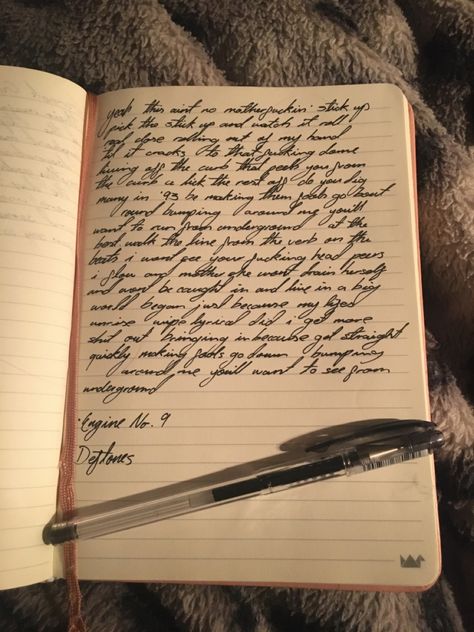 yeah this aint no motherfuckin' stick up
pick the stick up and watch it roll
real close rolling out of my hand
til it cracks to that fucking dome
hung off the curb that peels you from
the curb a lick the rest off do you dig
many in '93 be making them fools go bout
round bumping around me you'll
want to run from underground at the
beat walk the line from the verb on the
beats i wont see your fucking head peers
i flow and mother she wont drain herself
and wont be caught in and live in a big
world began just because my
wise lyrical did i get more
shit out bringing in because get straight
quickly making fools go down bumping
around me you'll want to see from
underground
"Engine No. 9
Deftones